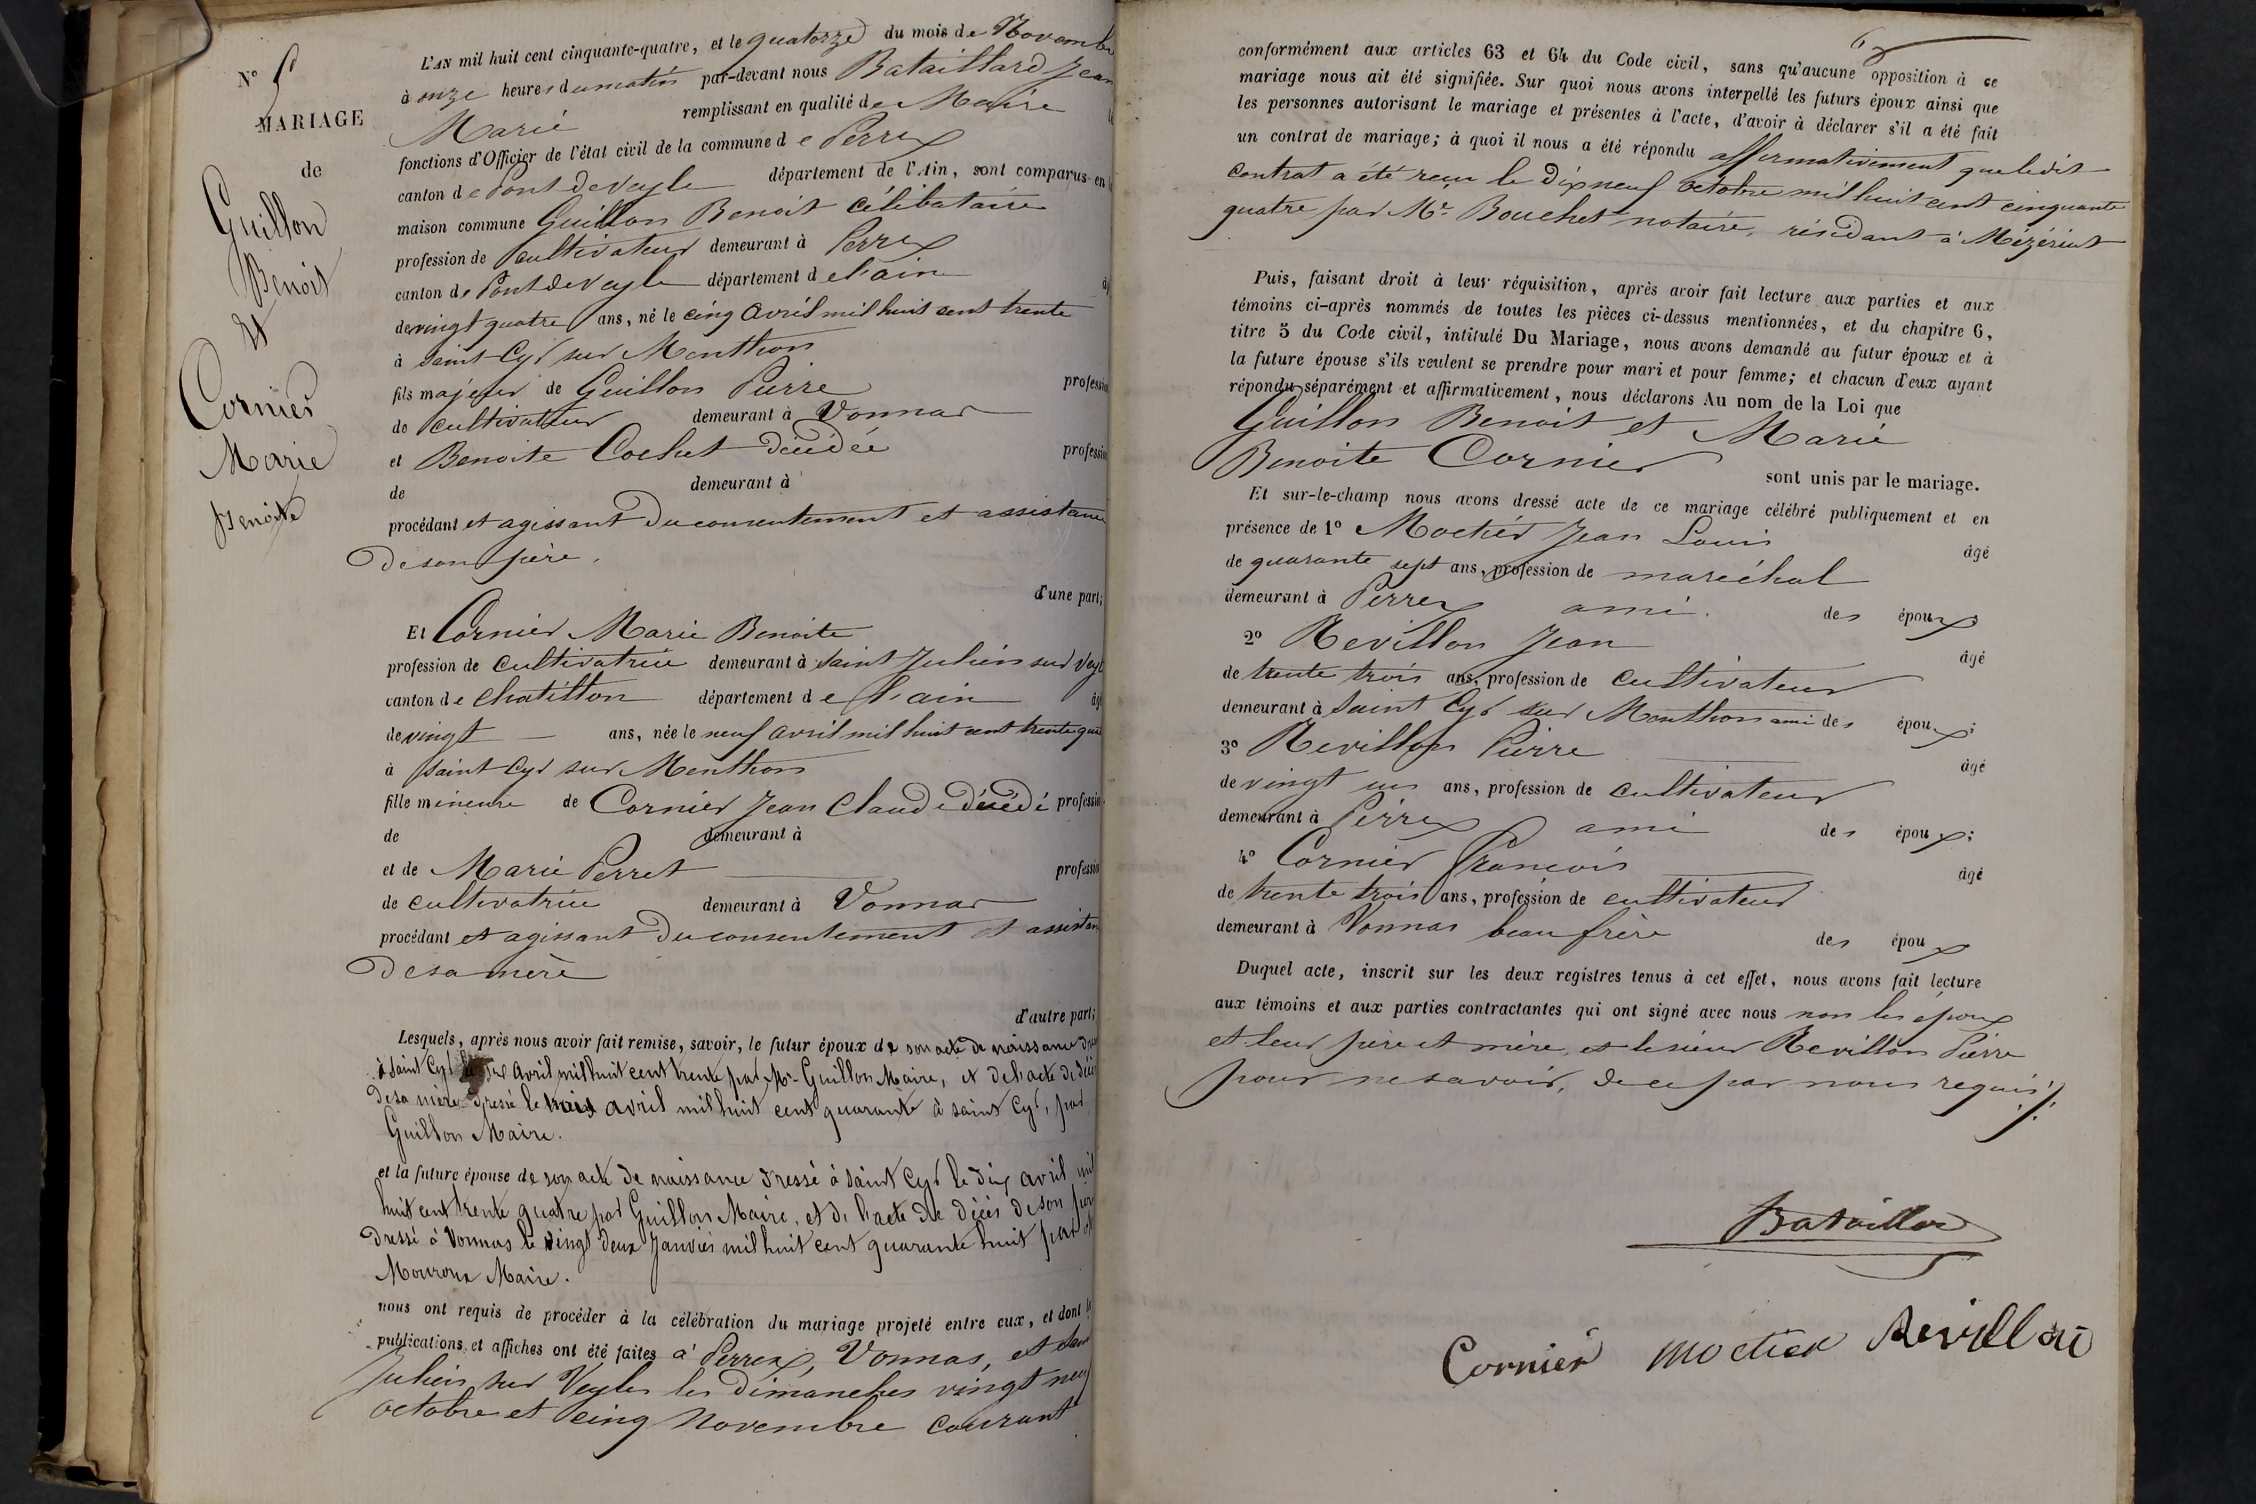 N° 5
MARIAGE
de
Guillon
Benoit
et
Cornier
Marie
Benoite
L'AN mil huit cent cinquante-quatre, et le quatorze du mois de Novembre
à onze heures du matin par-devant nous Bataillard Jean
Marie remplissant en qualité de Maire
fonctions d'Officier de l'état civil de la commune de Perrex
canton de Pont de Veyle département de l'Ain, sont comparus en
maison commune Guillon Benoit célibataire
profession de cultivateur demeurant à Perrex
canton de Pont de Veyle département de l'ain
de vingt quatre ans, né le cinq avril mil huit cent trente
à Saint Cyr sur Menthon
fils majeur de Guillon Pierre profession
de cultivateur demeurant à Vonnas
et Benoite Cochet décédée profession
de demeurant à
procédant et agissant du consentement et assistance
de son père.
d'une part;
Et Cornier Marie Benoite
profession de cultivatrice demeurant à Saint Julien sur Veyle
canton de Chatillon département de l'ain âgé
de vingt ans, née le neuf avril mil huit cent trente quatre
à Saint Cyr sur Menthon
fille mineure de Cornier Jean Claude décédé profession
de demeurant à
et de Marie Perret profession
de cultivatrice demeurant à Vonnas
procédant et agissant du consentement et assistance
de sa mère
d'autre part;
Lesquels, après nous avoir fait remise, savoir, le futur époux de son acte de naissance
à Saint Cyr avril mil huit cent trente par Mr Guillon Maire, et de l'acte de décès
de sa mère dressé le trois avril mil huit cent quarante à Saint Cyr, par
Guillon Maire.
et la future épouse de son acte de naissance dressé à Saint Cyr le dix avril mil
huit cent trente quatre par Guillon Maire, et de l'acte de décès de son père
dressé à Vonnas le vingt deux Janvier mil huit cent quarante huit par
Mouroux Maire.
nous ont requis de procéder à la célébration du mariage projeté entre eux, et dont
publications et affiches ont été faites à Perrex, Vonnas, et Saint
Julien sur Veyle les dimanches vingt neuf
octobre et cinq Novembre courant
6
conformément aux articles 63 et 64 du Code civil, sans qu'aucune opposition à ce
mariage nous ait été signifiée. Sur quoi nous avons interpellé les futurs époux ainsi que
les personnes autorisant le mariage et présentes à l'acte, d'avoir à déclarer s'il a été fait
un contrat de mariage; à quoi il nous a été répondu affirmativement que ledit
contrat a été reçu le dix neuf octobre mil huit cent cinquante
quatre par Mr. Bouchet notaire, résidant à Mézériat
Puis, faisant droit à leur réquisition, après avoir fait lecture aux parties et aux
témoins ci-après nommés de toutes les pièces ci-dessus mentionnées, et du chapitre 6,
titre 5 du Code civil, intitulé Du Mariage, nous avons demandé au futur époux et à
la future épouse s'ils veulent se prendre pour mari et pour femme; et chacun d'eux ayant
répondu séparément et affirmativement, nous déclarons Au nom de la Loi que
Guillon Benoit et Marie
Benoite Cornier sont unis par le mariage.
Et sur-le-champ nous avons dressé acte de ce mariage célébré publiquement et en
présence de 1° Moctier Jean Louis âgé
de quarante sept ans, profession de maréchal
demeurant à Perrex ami des époux;
2° Revillon Jean âgé
de trente trois ans, profession de cultivateur
demeurant à Saint Cyr sur Menthon ami des époux;
3° Revillon Pierre âgé
de vingt un ans, profession de cultivateur
demeurant à Perrex ami des époux;
4° Cornier François âgé
de trente trois ans, profession de cultivateur
demeurant à Vonnas beau frère des époux
Duquel acte, inscrit sur les deux registres tenus à cet effet, nous avons fait lecture
aux témoins et aux parties contractantes qui ont signé avec nous non les époux
et leur père et mère, et le sieur Revillon Pierre
pour ne savoir, de ce par nous requis ./.
Bataillard
Cornier Moctier Revillon